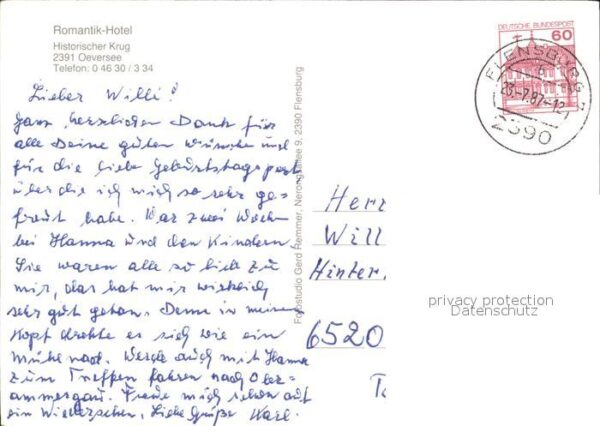 Romantik-Hotel
Historischer Krug
2391 Oeversee
Telefon: 0 46 30 / 3 34
Lieber Willi!
Ganz herzlichen Dank für
alle Deine guten Wünsche und
für die liebe Geburtstagspost
über die ich mich so sehr ge-
freut habe. War zwei Wochen
bei Hanna und den Kindern.
Sie waren alle so lieb zu
mir, das hat mir wirklich
sehr gut getan. Denn in meinem
Kopf drehte es sich wie ein
Mühlrad. Werde auch mit Hanna
zum Treffen fahren nach Ober=
ammergau. Freue mich schon auf
ein Wiedersehen, Liebe Grüße Karl.
Fotostudio Gerd Remmer, Nerongsallee 9, 2390 Flensburg
DEUTSCHE BUNDESPOST
60
FLENSBURG 1
23.-7.87-12
2390
Herr
Will
Hinter.
6520
privacy protection
Datenschutz